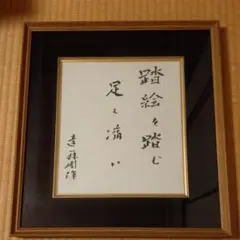 踏絵を踏む
足も痛い
遠藤周作